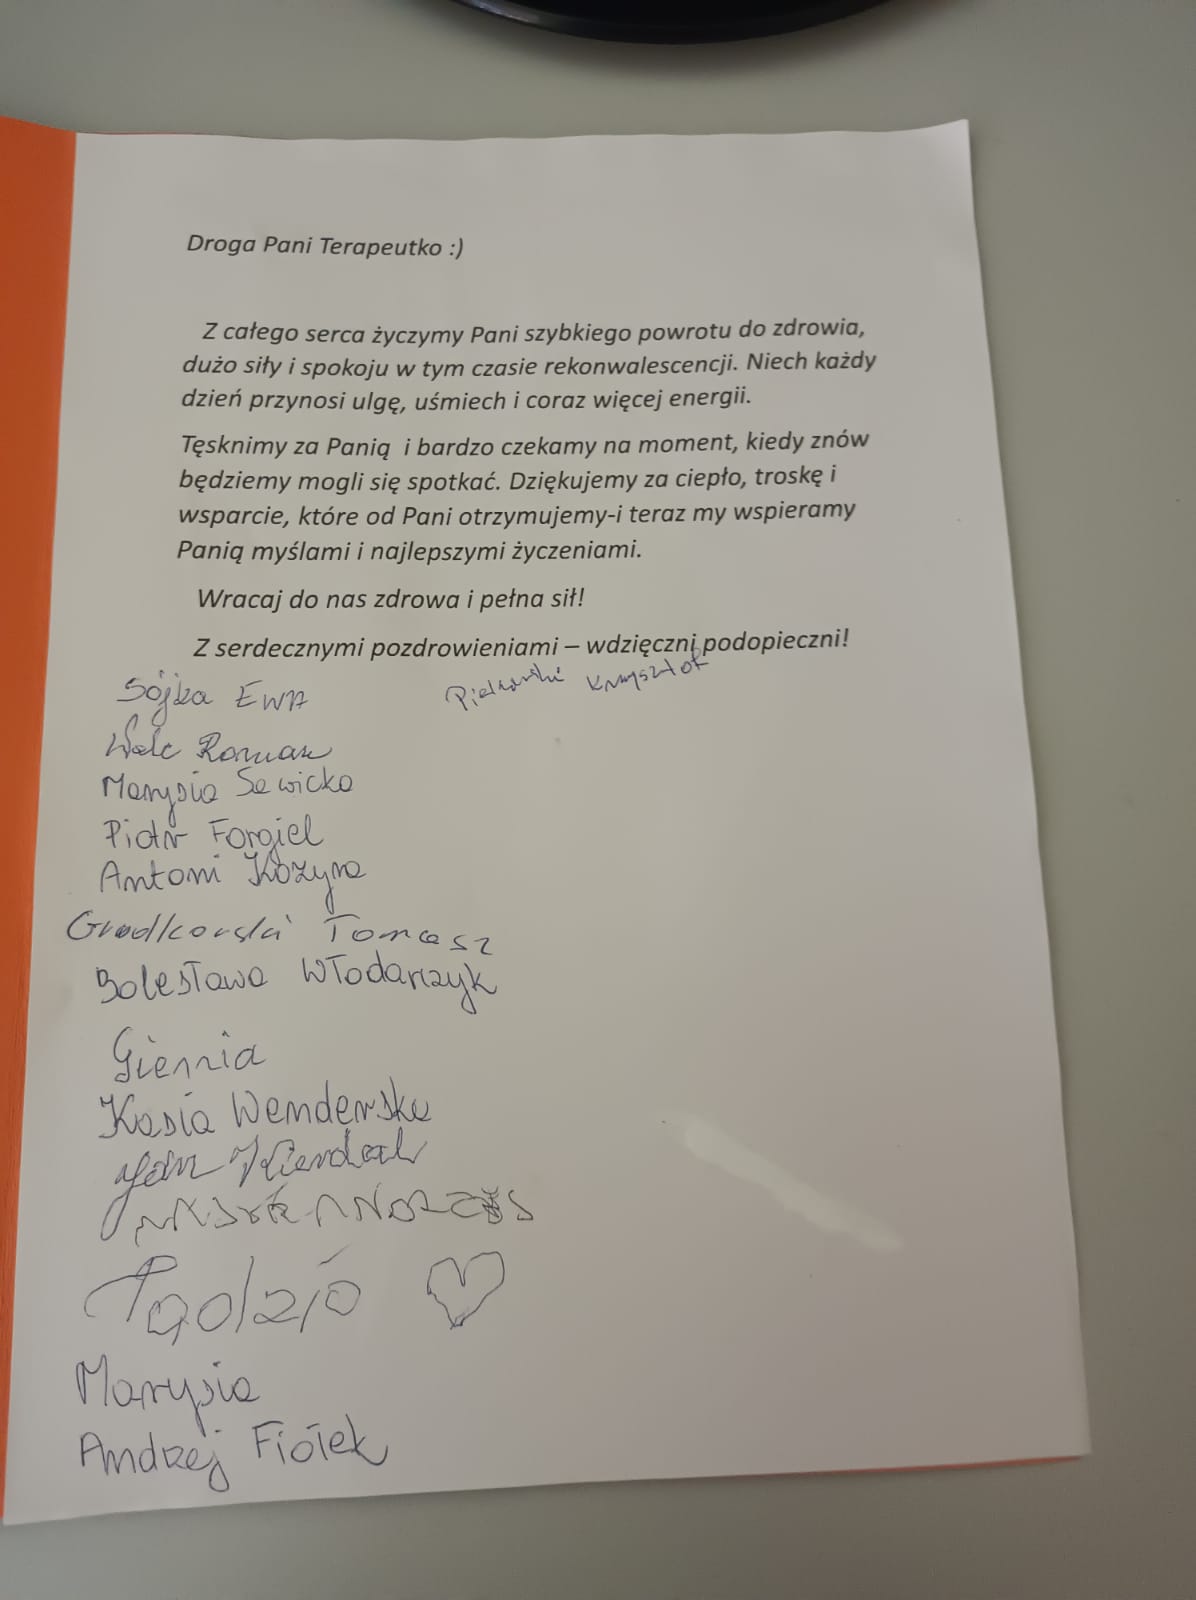 Droga Pani Terapeutko :)
Z całego serca życzymy Pani szybkiego powrotu do zdrowia,
dużo siły i spokoju w tym czasie rekonwalescencji. Niech każdy
dzień przynosi ulgę, uśmiech i coraz więcej energii.
Tęsknimy za Panią i bardzo czekamy na moment, kiedy znów
będziemy mogli się spotkać. Dziękujemy za ciepło, troskę i
wsparcie, które od Pani otrzymujemy-i teraz my wspieramy
Panią myślami i najlepszymi życzeniami.
Wracaj do nas zdrowa i pełna sił!
Z serdecznymi pozdrowieniami – wdzięczni podopieczni!
Krzysztof
Sójka EWA
Walc Roman
Marysia Sawicka
Piotr Forgiel
Antoni Kozyra
Grodkowski Tomasz
Bolesława Włodarczyk
Giennia
Kasia Wenderska
Jan
Tadzio
Marysia
Andrzej Fiołek